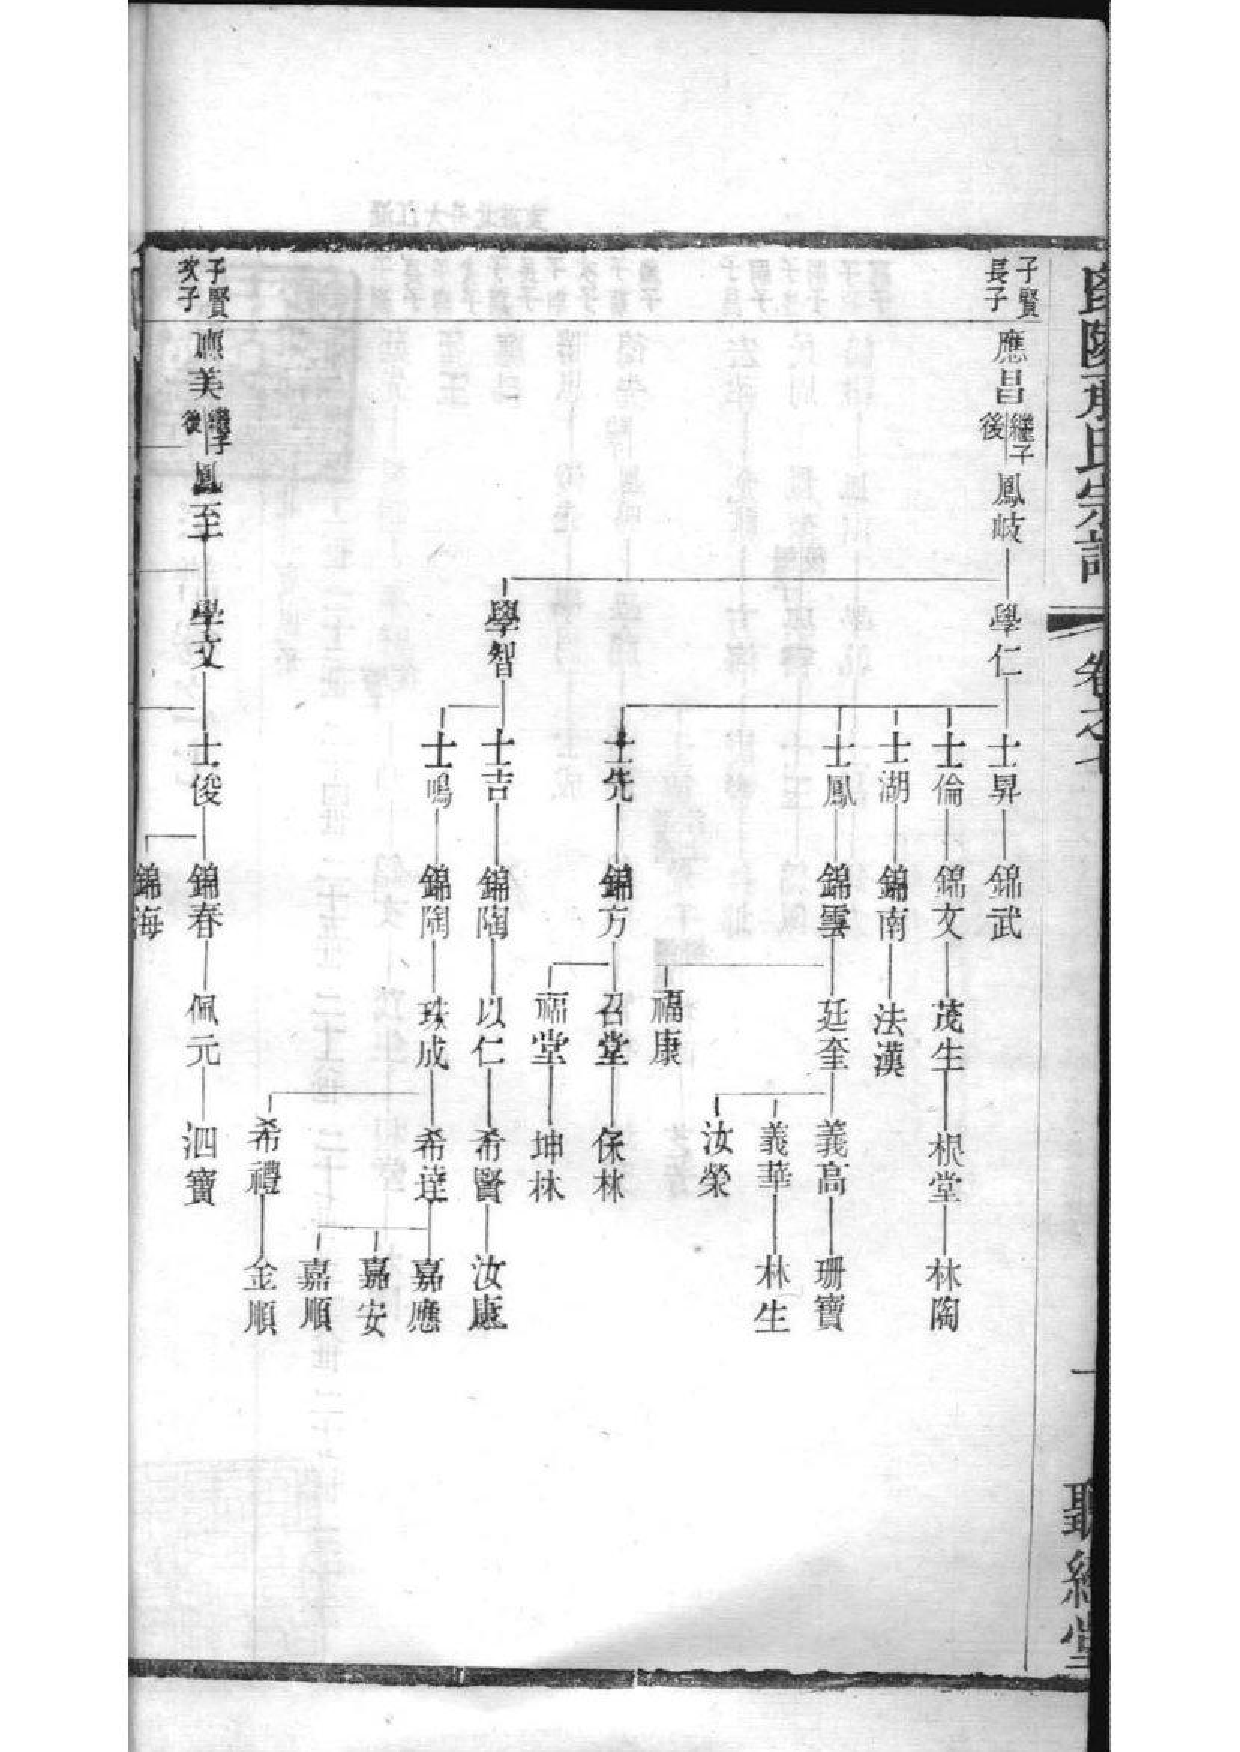 氏宗譜
卷之七
一
聽經堂
子賢長子
應昌
繼子後
鳳岐
學仁
士昇
錦武
士倫
錦文
茂生
根堂
林陶
士湖
錦南
法漢
士鳳
錦雲
廷奎
義高
珊寶
義華
林生
汝榮
福康
士先
錦方
召堂
保林
福堂
坤林
學智
士吉
錦陶
以仁
希賢
汝康
士鳴
錦陶
珠成
希達
嘉應
嘉安
嘉順
希禮
金順
子賢次子
應美
後
鳳至
學文
士俊
錦春
佩元
泗寶
錦海